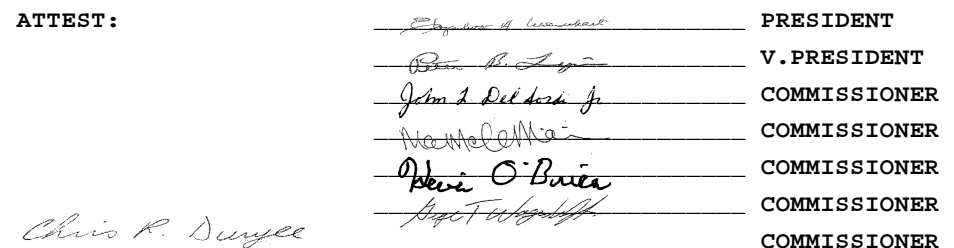 ATTEST: PRESIDENT
B. V.PRESIDENT
John L Del Sordi Jr COMMISSIONER
COMMISSIONER
Kevin O'Brien COMMISSIONER
T COMMISSIONER
Chris R. Duryee COMMISSIONER